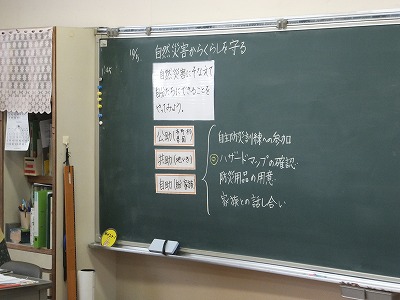 自然災害からくらしを守る
自然災害にそなえて
自分たちにできることを
やってみよう。
公助
共助(地いき)
自助
自主防災訓練への参加
ハザードマップの確認
防災用品の用意
家族との話し合い